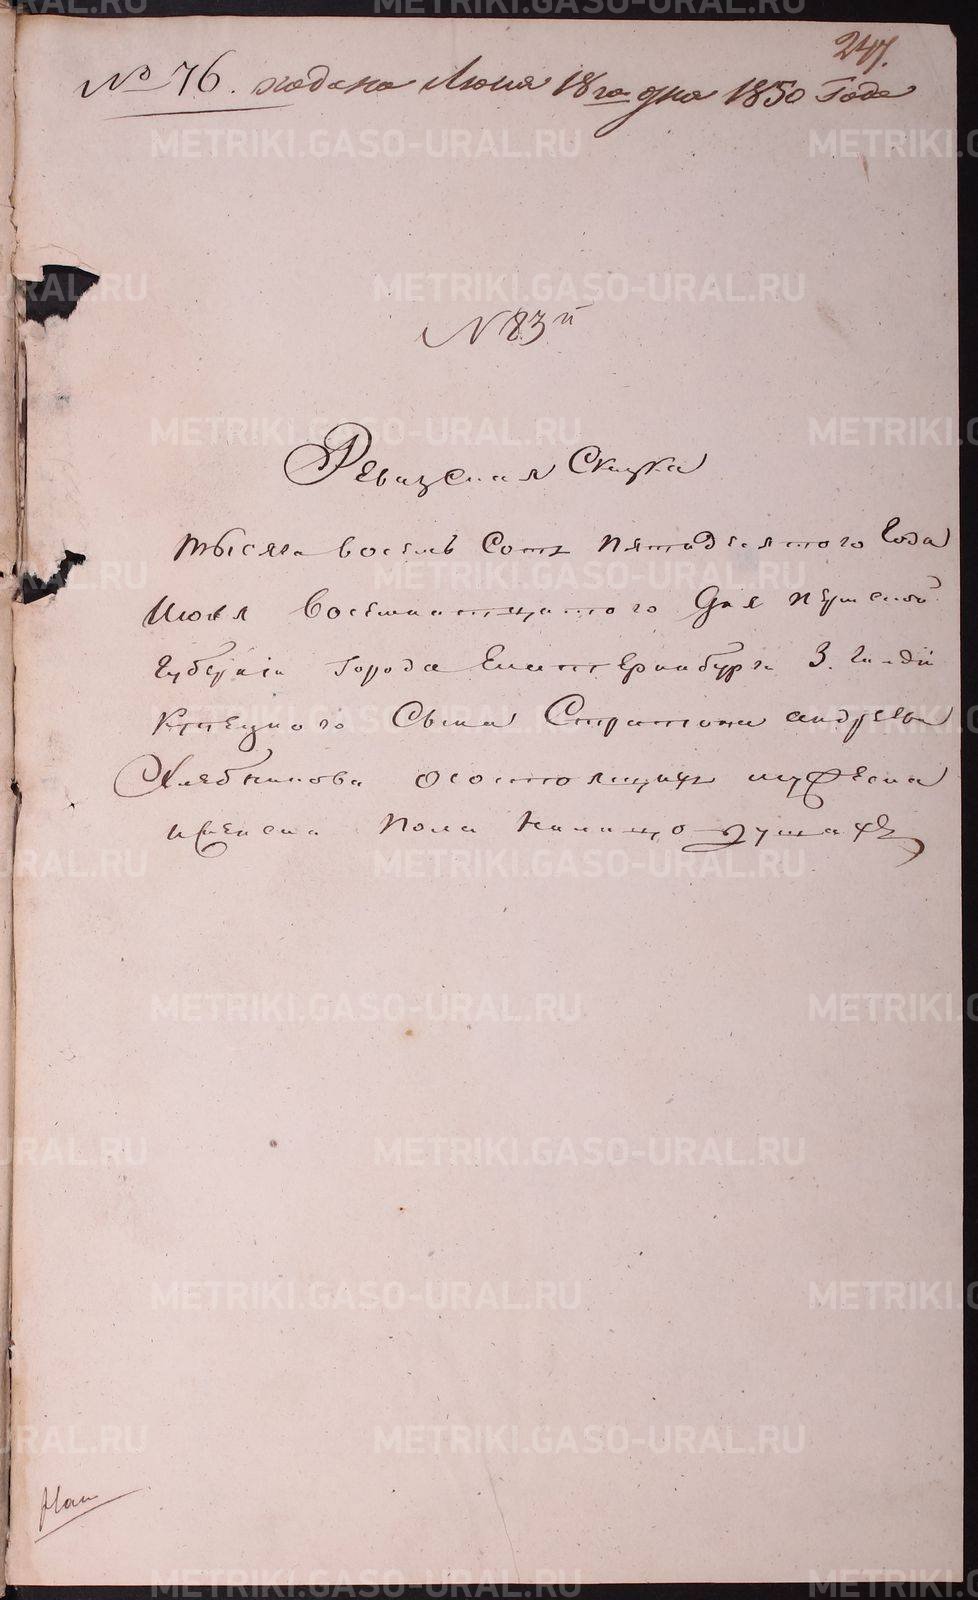 247.
№ 76. подана Июня 18го дня 1850 Года
№ 83й
Ревизская Скаска
тысяча восемь Сотъ пятьдесятого Года
Июня восемнатцатого Дня пермской
Губерніи Города Екатеринбурга 3. Гилдіи
Купецкого Сына Стратона андреева
Хлебникова осостоящихъ мужеска
иженска пола налицо душахъ
METRIKI.GASO-URAL.RU